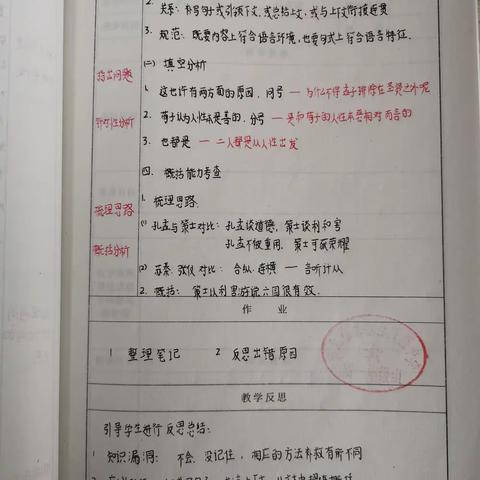 2. 关系：书写句式或引领下文，或总结上文，或与上下文衔接连贯
3. 规范：既要内容上符合语言环境，也要句式上符合语言特征。
(二) 填空分析
指出问题
1. 这也许有两方面的原因，问号 — 为什么不得孟子排除在至圣之外呢
针对性分析
2. 荀子认为人性本是善的，分号 — 是和荀子的人性本恶相对而言的
3. 也都是 — 二人都是从人性出发
四. 概括能力考查
梳理思路
1. 梳理思路.
(1) 孔孟与策士对比：孔孟谈道德，策士谈利和害
孔孟不被重用，策士可获荣耀
概括分析
(2) 苏秦、张仪对比：合纵、连横 — 言听计从
2. 概括：策士以利害游说六国很有效.
作 业
1 整理笔记 2 反思出错原因
教学反思
引导学生进行反思总结：
1 知识漏洞：不会、没记住，相应的方法养教有所不同